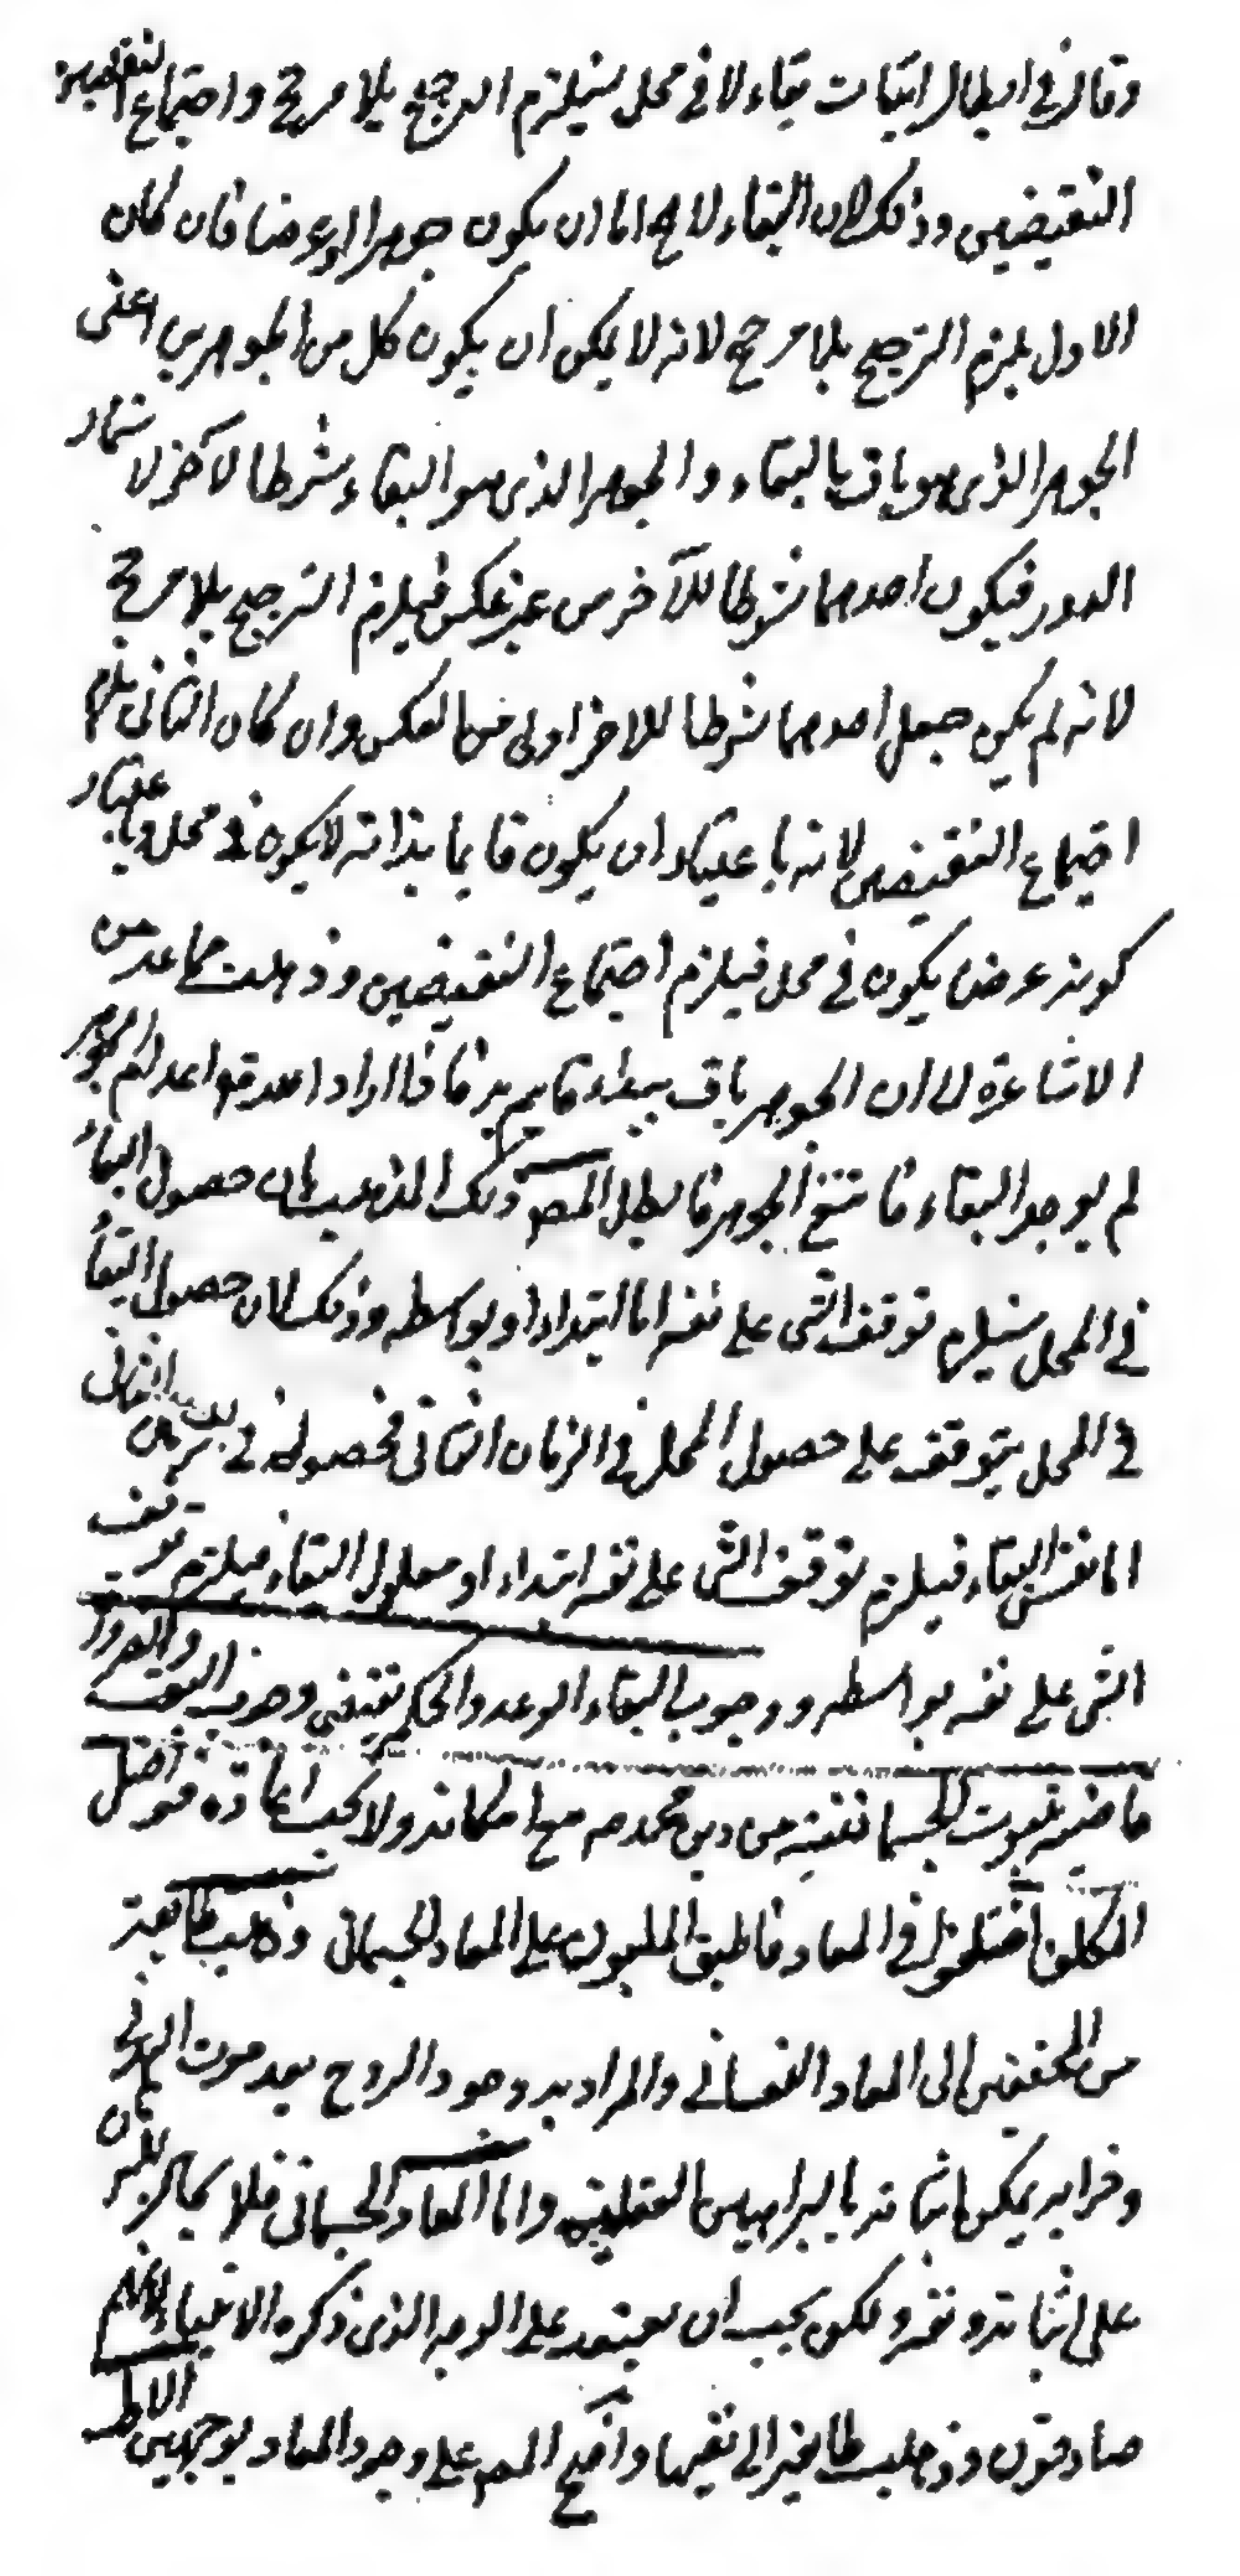 وقال في ابطال اثبات بقاء لا في محل يستلزم الترجيح بلا مرجح واجتماع النقيضين
النقيضين وذلك لان البقاء لا يخ اما ان يكون جوهرا او عرضا فان كان
الاول يلزم الترجيح بلا مرجح لانه لا يمكن ان يكون كل من الجوهرين اعنى
الجوهر الذى هو باق بالبقاء والجوهر الذى هو البقاء شرطا لآخر لاستحالة
الدور فيكون احدهما شرطا للآخر من غير عكس فيلزم الترجيح بلا مرجح
لانه لم يكن جعل احدهما شرطا للاخر اولى من العكس وان كان الثانى يلزم
اجتماع النقيضين لانه باعتبار ان يكون قايما بذاته لا يكون في محل وباعتبار
كونه عرضا يكون في محل فيلزم اجتماع النقيضين وذهبت جماعة من
الاشاعرة الى ان الجوهر باق ببقاء قايم به فاذا اراد اعدام الجوهر
لم يوجد البقاء فانتفى الجوهر فابطل المصـ ذلك المذهب بان حصول البقاء
في المحل يستلزم توقف الشى على نفسه اما ابتداء او بواسطه وذلك لان حصول البقاء
في المحل يتوقف على حصول المحل في الزمان الثانى فحصوله في الزمان الثانى
اما نفس البقاء فيلزم توقف الشى على نفسه ابتداء او معلول البقاء فيلزم توقف
الشى على نفسه بواسطه ووجوب ايفاء الوعد والحكمة يقتضى وجوب البعث والضرورة
قاضية بثبوت الجسمانى من دين محمد صـ مع امكانه ولا يجب اعادة فواضل
المكلف اختلفوا في المعاد فاطبق المليون على المعاد الجسمانى وذهب طايفة
من المحققين الى المعاد النفسانى والمراد به وجود الروح بعد موت البدن
وخرابه يمكن اثباته بالبراهين العقلية واما المعاد الجسمانى فلا مجال للبرهان
على اثباته ونفيه ولكن يجب ان يعتمد على الوجه الذى ذكره الانبياء لانهم
صادقون وذهبت طايفة الى نفيها واحتج المصـ على وجود المعاد بوجهين الاول